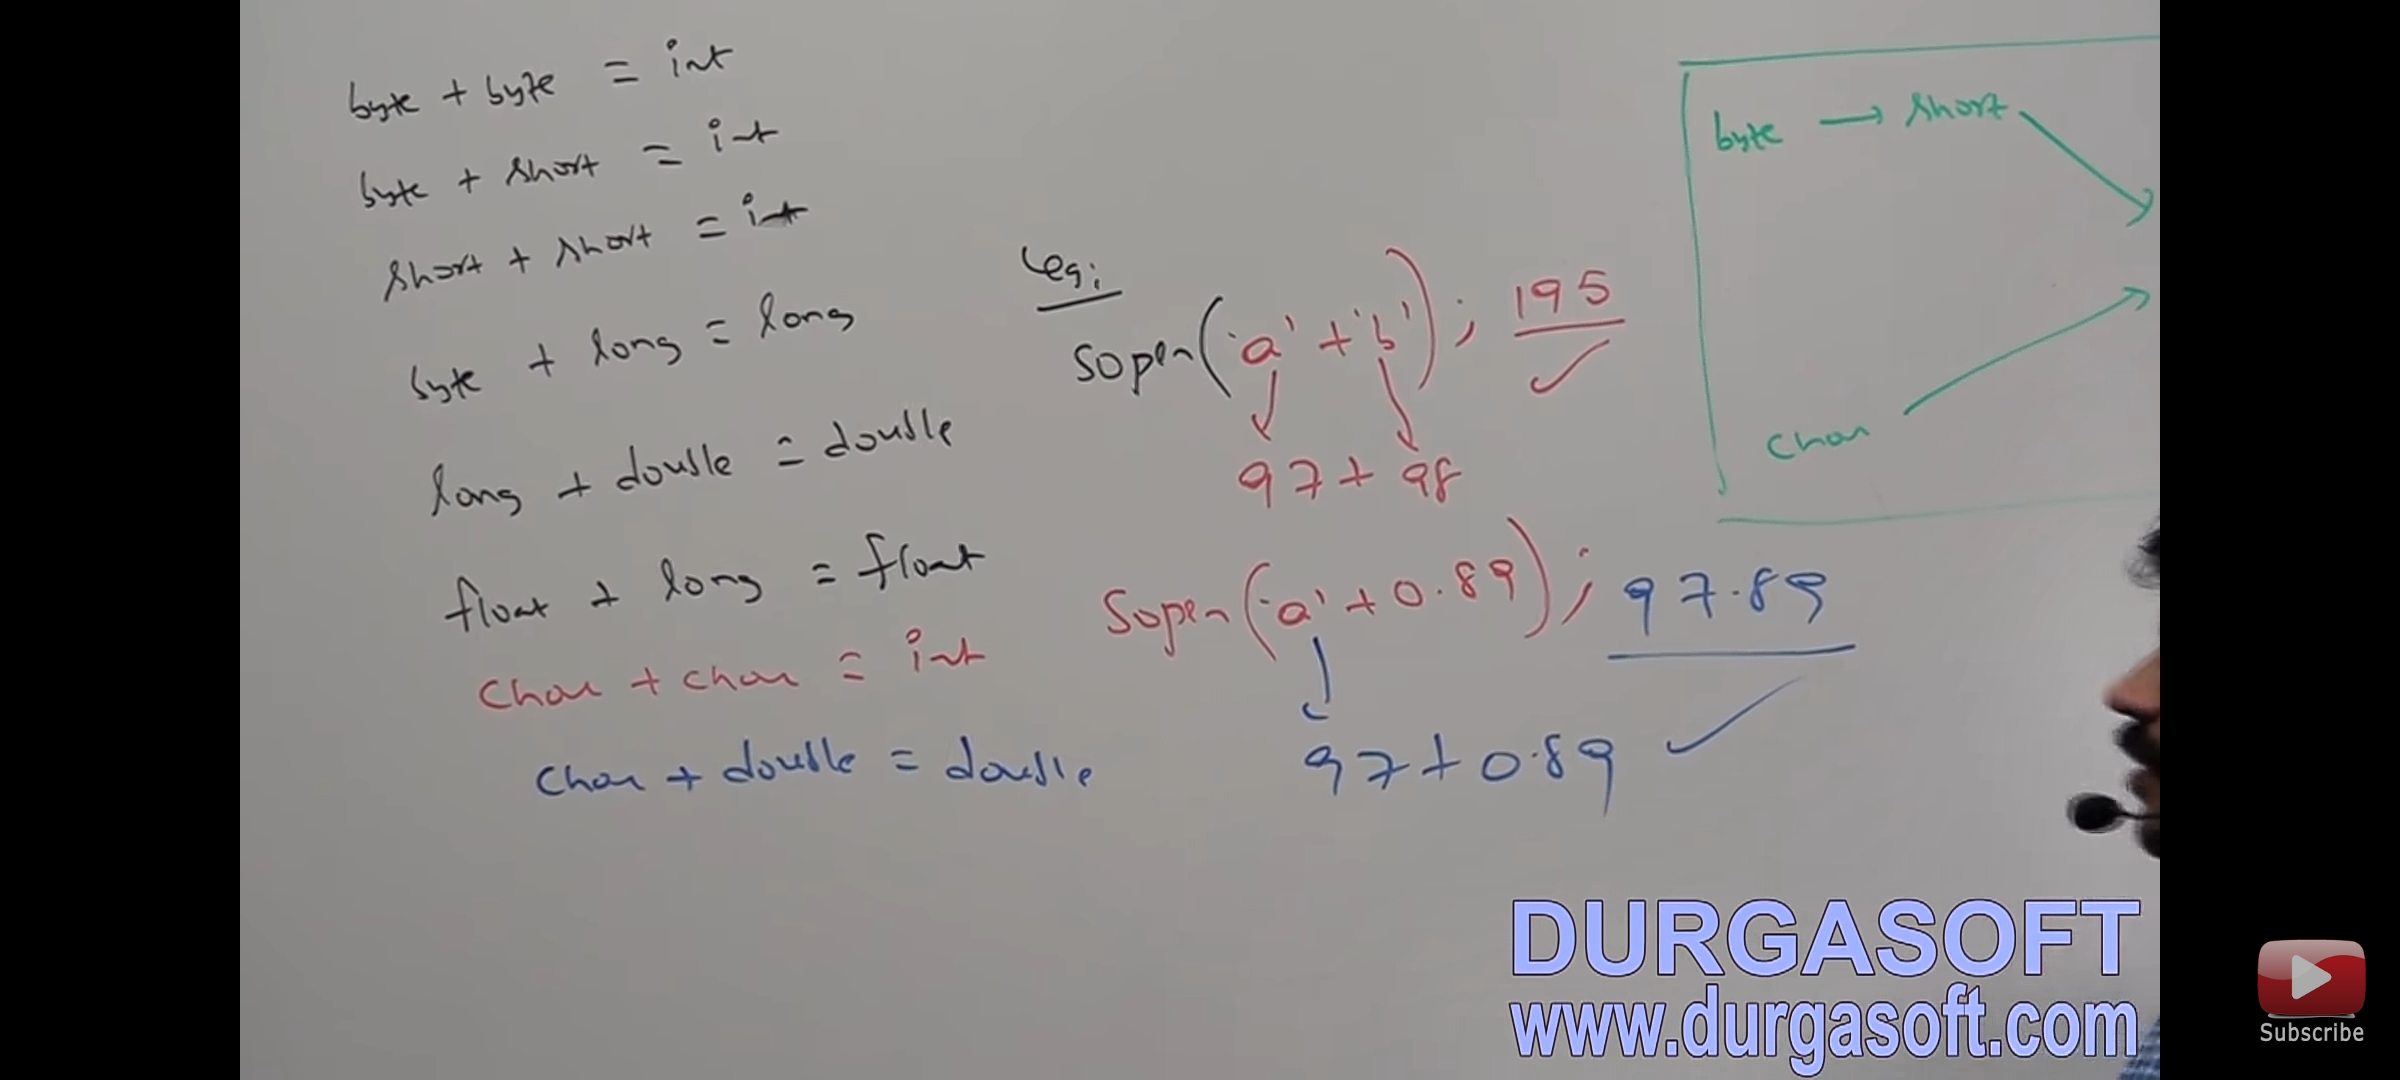 byte + byte = int
byte + short = int
short + short = int
byte + long = long
long + double = double
float + long = float
char + char = int
char + double = double
eg:
Sopln('a' + 'b'); 195
97 + 98
Sopln('a' + 0.89); 97.89
97 + 0.89
byte → short
char
DURGASOFT
www.durgasoft.com
Subscribe